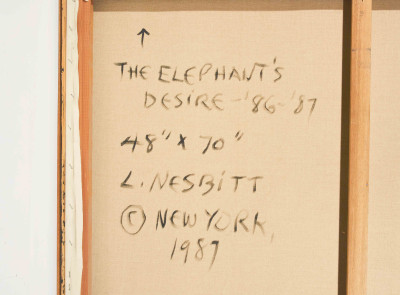 ↑
THE ELEPHANT'S
DESIRE - '86 - '87
48" x 70"
L. NESBITT
© NEW YORK,
1987